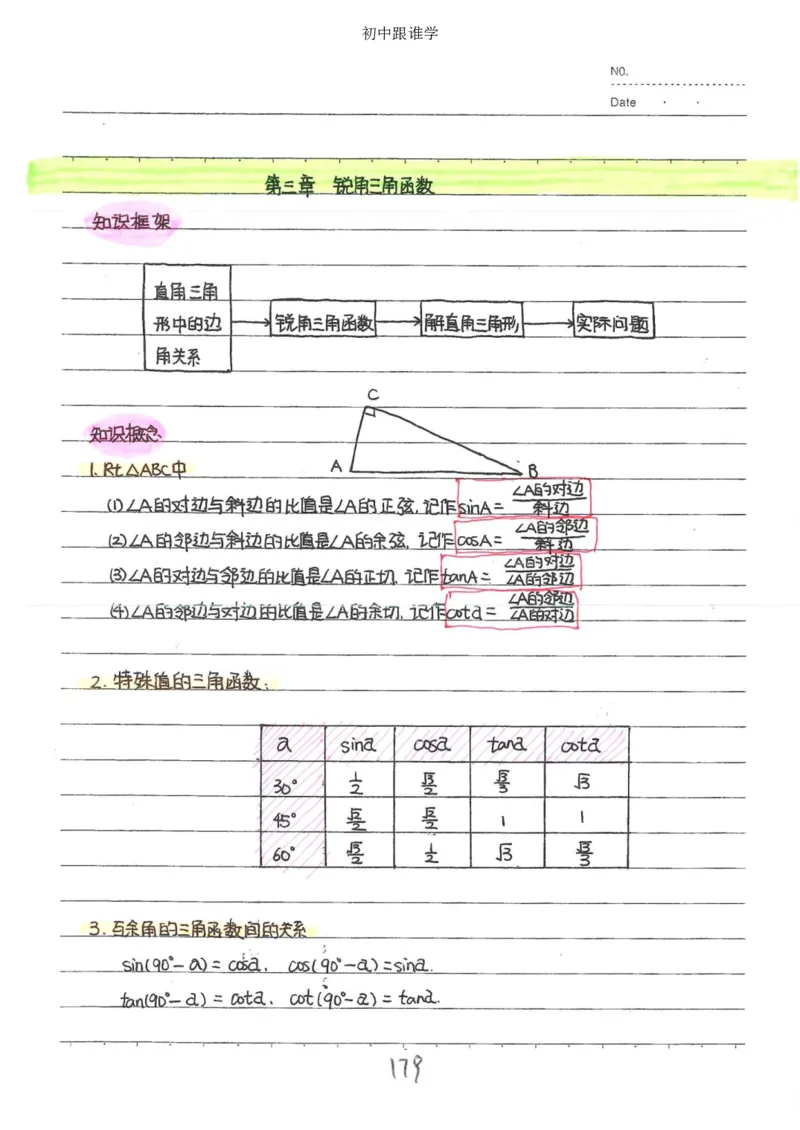 初中跟谁学
NO.
Date · ·
第三章 锐角三角函数
知识框架
直角三角
形中的边
角关系
锐角三角函数
解直角三角形
实际问题
C
知识概念
A
B
1. Rt△ABC中
(1)∠A的对边与斜边的比值是∠A的正弦,记作sinA=∠A的对边/斜边
(2)∠A的邻边与斜边的比值是∠A的余弦,记作cosA=∠A的邻边/斜边
(3)∠A的对边与邻边的比值是∠A的正切,记作tanA=∠A的对边/∠A的邻边
(4)∠A的邻边与对边的比值是∠A的余切,记作cota=∠A的邻边/∠A的对边
2. 特殊值的三角函数:
a sina cosa tana cota
30° 1/2 √3/2 √3/3 √3
45° √2/2 √2/2 1 1
60° √3/2 1/2 √3 √3/3
3. 互余角的三角函数间的关系
sin(90°-a)=cosa, cos(90°-a)=sina.
tan(90°-a)=cota, cot(90°-a)=tana.
179